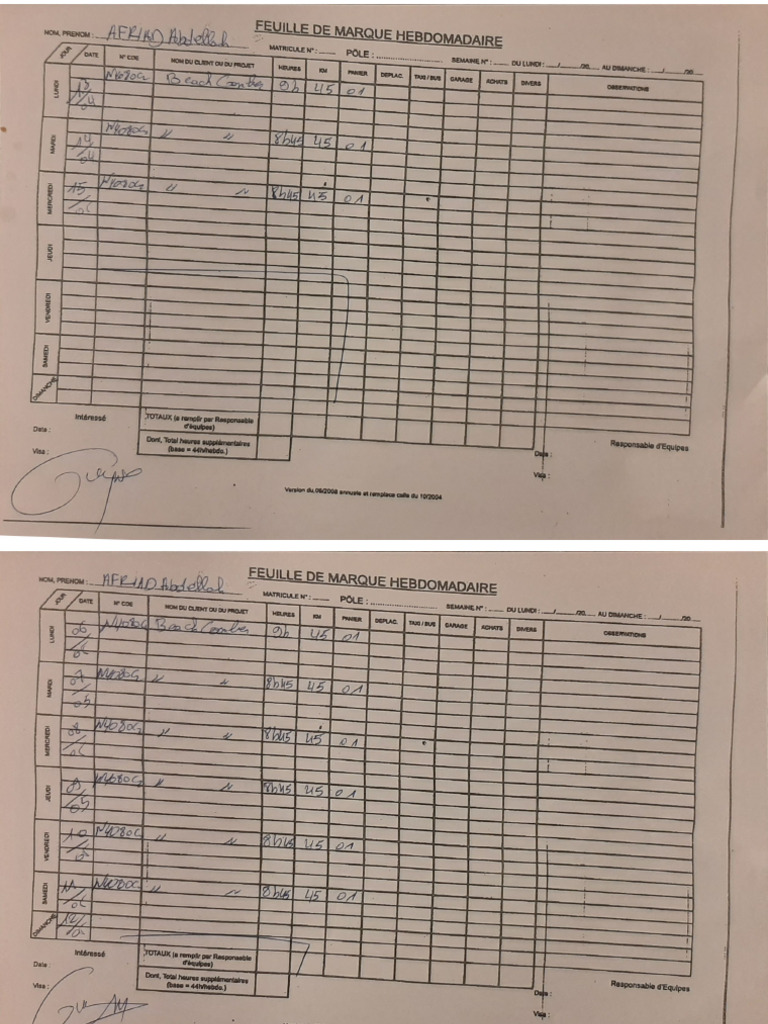 FEUILLE DE MARQUE HEBDOMADAIRE
NOM, PRENOM : AFRIAD Abdellah MATRICULE N° : ...... PÔLE : .................... SEMAINE N° : ...... DU LUNDI : ..../....../20.... AU DIMANCHE : ..../....../20....
JOUR DATE N° CDE NOM DU CLIENT OU DU PROJET HEURES KM PANIER DEPLAC. TAXI / BUS GARAGE ACHATS DIVERS OBSERVATIONS
LUNDI 13/04 N4080G 9h 45 01
MARDI 14/04 N4080G " " 8h45 45 01
MERCREDI 15/ N4080G " " 8h45 45 01
JEUDI
VENDREDI
SAMEDI
DIMANCHE
Intéressé TOTAUX (a remplir par Responsable d'équipes)
Date : Dont, Total heures supplémentaires (base = 44h/hebdo.) Date : Responsable d'Equipes
Visa : Visa :
Version du 09/2008 annuele et remplace celle du 10/2004
FEUILLE DE MARQUE HEBDOMADAIRE
NOM, PRENOM : AFRIAD Abdellah MATRICULE N° : ...... PÔLE : .................... SEMAINE N° : ...... DU LUNDI : ..../....../20.... AU DIMANCHE : ..../....../20....
JOUR DATE N° CDE NOM DU CLIENT OU DU PROJET HEURES KM PANIER DEPLAC. TAXI / BUS GARAGE ACHATS DIVERS OBSERVATIONS
LUNDI 06/ N4080G Beach Comber 9h 45 01
MARDI 07/05 N4080G " " 8h45 45 01
MERCREDI 08/ N4080G " " 8h45 45 01
JEUDI 09/05 N4080G " " 8h45 45 01
VENDREDI 10/ N4080G " " 8h45 45 01
SAMEDI 11/ N4080G " " 8h45 45 01
DIMANCHE 12/
Intéressé TOTAUX (a remplir par Responsable d'équipes)
Date : Dont, Total heures supplémentaires (base = 44h/hebdo.) Date : Responsable d'Equipes
Visa : Visa :